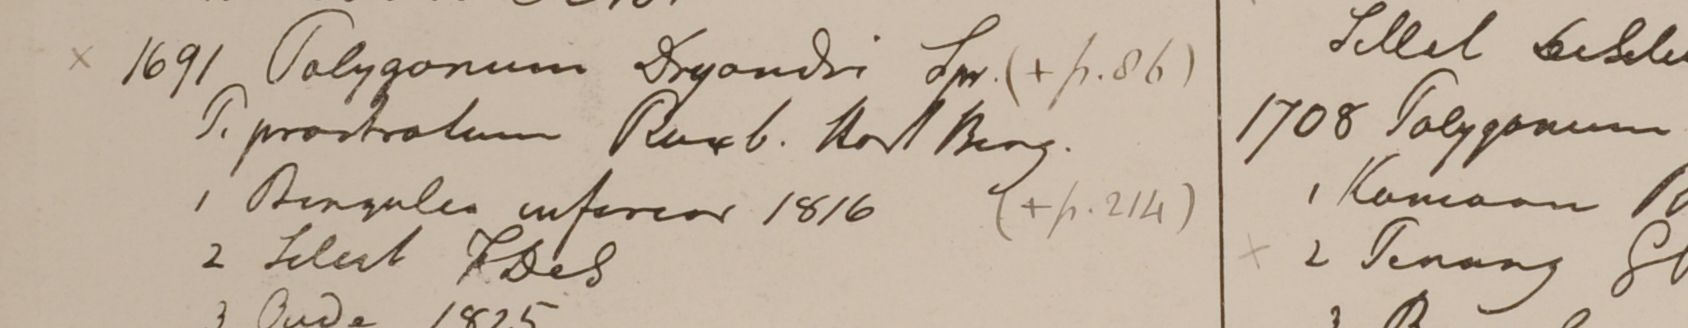 × 1691 Polygonum Dryandri Spr. (+ p. 86)
P. prostratum Roxb. Hort Beng.
1 Bengalea inferior 1816 (+ p. 214)
2 Sillet FDeS
3 Oude 1825
Sillet
1708 Polygonum
1 Kamaon
× 2 Penang
3 B